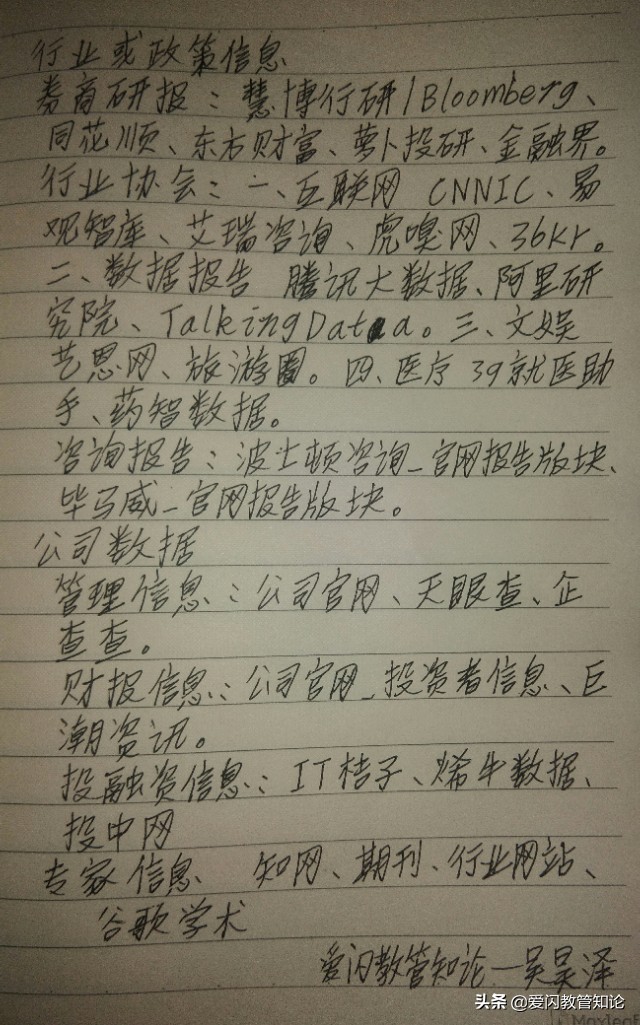 行业或政策信息
券商研报：慧博行研/Bloomberg、
同花顺、东方财富、萝卜投研、金融界。
行业协会：一、互联网 CNNIC、易
观智库、艾瑞咨询、虎嗅网、36kr。
二、数据报告 腾讯大数据、阿里研
究院、TalkingData。三、文娱
艺恩网、旅游圈。四、医疗 39就医助
手、药智数据。
咨询报告：波士顿咨询_官网报告版块、
毕马威_官网报告版块。
公司数据
管理信息：公司官网、天眼查、企
查查。
财报信息：公司官网_投资者信息、巨
潮资讯。
投融资信息：IT桔子、烯牛数据、
投中网
专家信息 知网、期刊、行业网站、
谷歌学术
爱闪教管知论—吴昊泽
头条@爱闪教管知论
Maxleaf